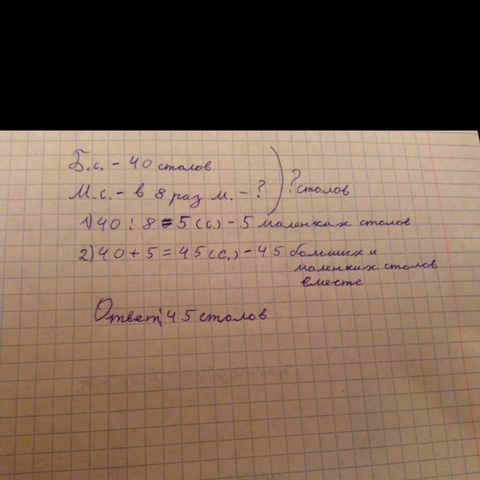 Б.с. - 40 столов
М.с. - в 8 раз м. - ? ? столов
1) 40 : 8 = 5 (с) - 5 маленких столов
2) 40 + 5 = 45 (с.) - 45 больших и
маленких столов
вместе
Ответ: 45 столов